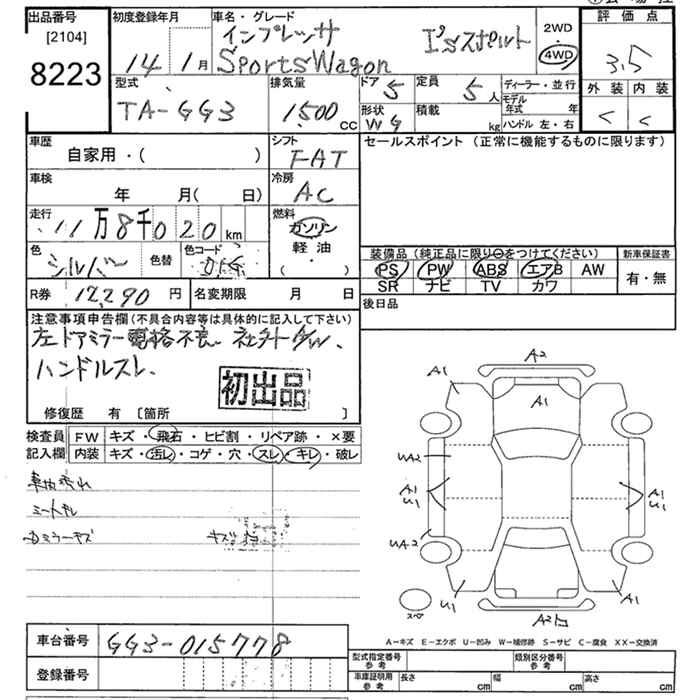 出品番号
[2104]
8223
初度登録年月
14 1月
車名・グレード
インプレッサ I'sスポルト
SportsWagon
2WD
4WD
評価点
3.5
外装 内装
C C
型式
TA-GG3
排気量
1500cc
ドア 5
定員 5人
形状 WG
積載 kg
ディーラー・並行
モデル年式 年
ハンドル 左・右
車歴
自家用・( )
シフト
FAT
車検
年 月( 日)
冷房
AC
走行
11万8千020km
燃料
ガソリン
軽油
・( )
色
シルバー
色替
色コード
R券 12290円
名変期限 月 日
セールスポイント (正常に機能するものに限ります)
装備品 (純正品に限り○をつけてください)
PS PW ABS エアB AW
SR ナビ TV カワ
新車保証書
有・無
後日品
注意事項申告欄(不具合内容等は具体的に記入して下さい)
左ドアミラー電格不良 社外AW、
ハンドルスレ、
初出品
修復歴 有 [箇所 ]
検査員記入欄
FW キズ・飛石・ヒビ割・リペア跡・×要
内装 キズ・汚レ・コゲ・穴・スレ・キレ・破レ
シートキレ
ミラーキズ
A2
A1
A1
UA2
A1
U1
UA2
U1
A1
U1
A1
スペ
A-キズ E-エクボ U-凹み W-補修跡 S-サビ C-腐食 XX-交換済
車台番号 GG3-015778
登録番号
型式指定番号 参考
類別区分番号 参考
車庫証明用 参考
長さ cm
幅 cm
高さ cm